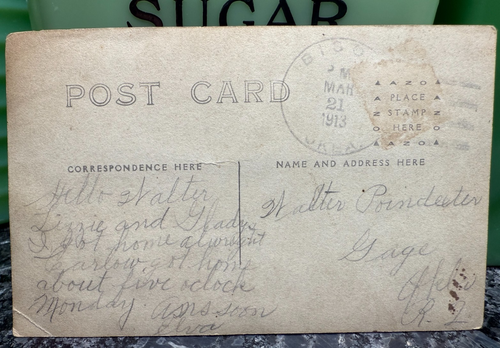 SUGAR
POST CARD
BISON
PM
MAR
21
1913
OKLA.
AZO
PLACE
STAMP
HERE
AZO
CORRESPONDENCE HERE
NAME AND ADDRESS HERE
Hello Walter
Lizzie and Gladys
I got home alwright
Garlow got home
about five oclock
Monday. ans soon
Elva
Walter Poindexter
Gage
Okla
R. 2